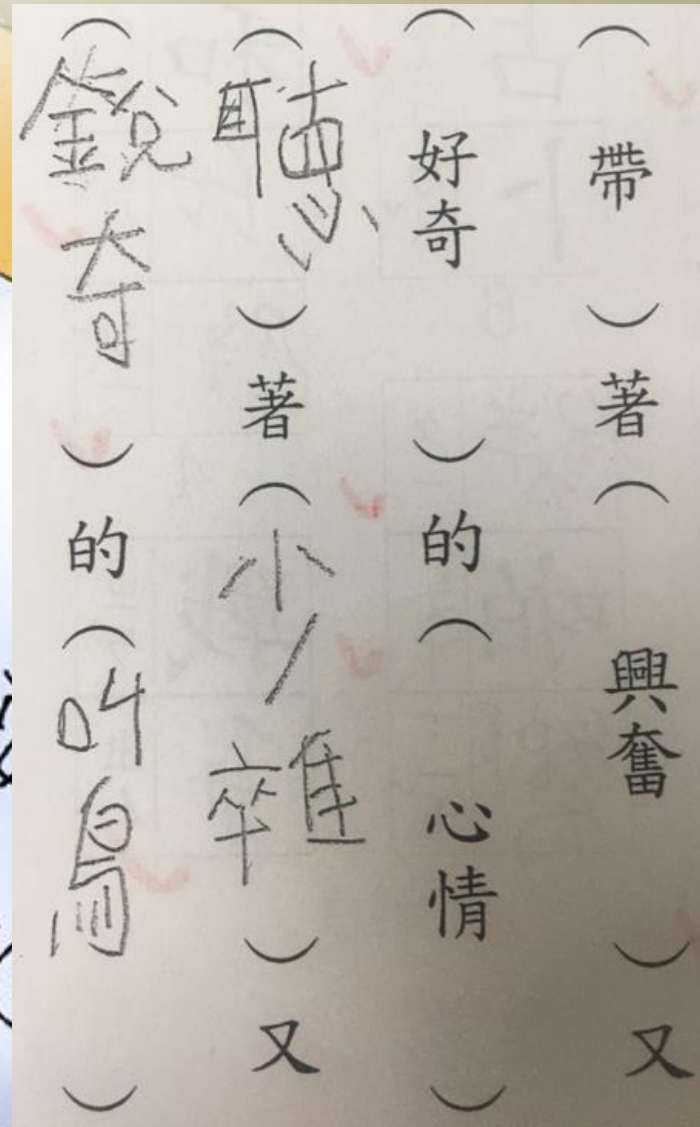 （帶）著（興奮）又
（好奇）的（心情）
（聽）著（少雜）又
（銳奇）的（叫鳥）